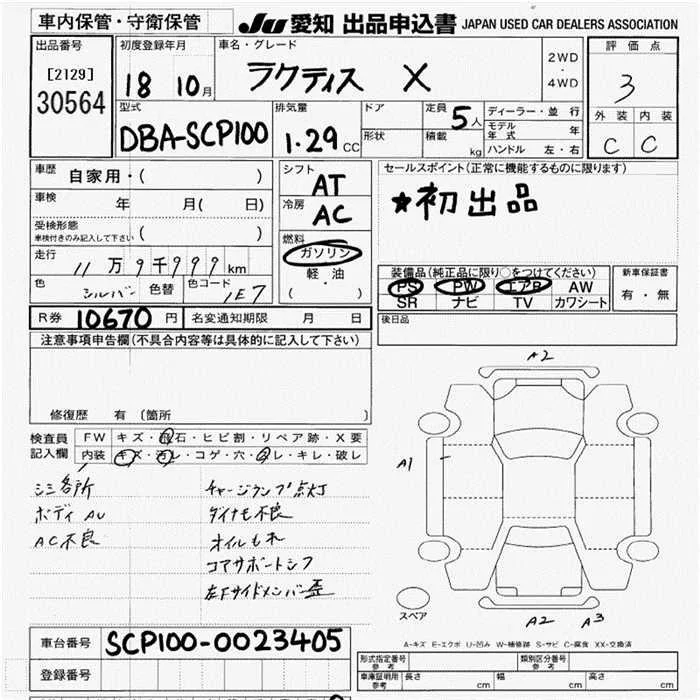 車内保管・守衛保管
JU 愛知 出品申込書 JAPAN USED CAR DEALERS ASSOCIATION
出品番号
[2129]
30564
初度登録年月
18 10月
車名・グレード
ラクティス X
2WD
・
4WD
評価点
3
外装 内装
C C
型式
DBA-SCP100
排気量
1.29 CC
ドア
形状
定員 5人
積載 kg
ディーラー・並行
モデル年式 年
ハンドル 左・右
車歴 自家用・( )
車検 年 月( 日)
受検形態
車検付きのみ記入して下さい ( )
走行 11万9千999km
色 シルバー 色替 色コード 1E7
シフト AT
冷房 AC
燃料
ガソリン
軽・油
( ・ )
セールスポイント(正常に機能するものに限ります)
★初出品
装備品(純正品に限り○をつけてください)
PS PW エアB AW
SR ナビ TV カワシート
新車保証書
有・無
R券 10670円 名変通知期限 月 日
後日品
注意事項申告欄(不具合内容等は具体的に記入して下さい)
修復歴 有 (箇所 )
検査員記入欄
FW キズ・飛石・ヒビ割・リペア跡・X要
内装 キズ・汚レ・コゲ・穴・スレ・キレ・破レ
シミ各所
ボディAU
AC不良
チャージランプ点灯
ダイナモ不良
オイルもれ
コアサポートシフ
左下サイドメンバー歪
A2
A1
スペア
A2 A3
A-キズ E-エクボ U-凹み W-補修跡 S-サビ C-腐食 XX-交換済
車台番号 SCP100-0023405
登録番号
形式指定番号 参考
類別区分番号 参考
車庫証明用 参考 長さ cm 幅 cm 高さ cm